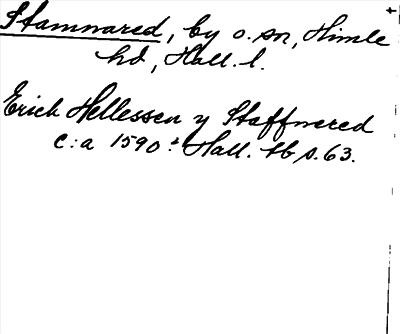 Stamnared, by o. sn, Himle
hd, Hall. l.
Erich Hellessen y Staffnered
c:a 1590 ± Hall. tb s. 63.